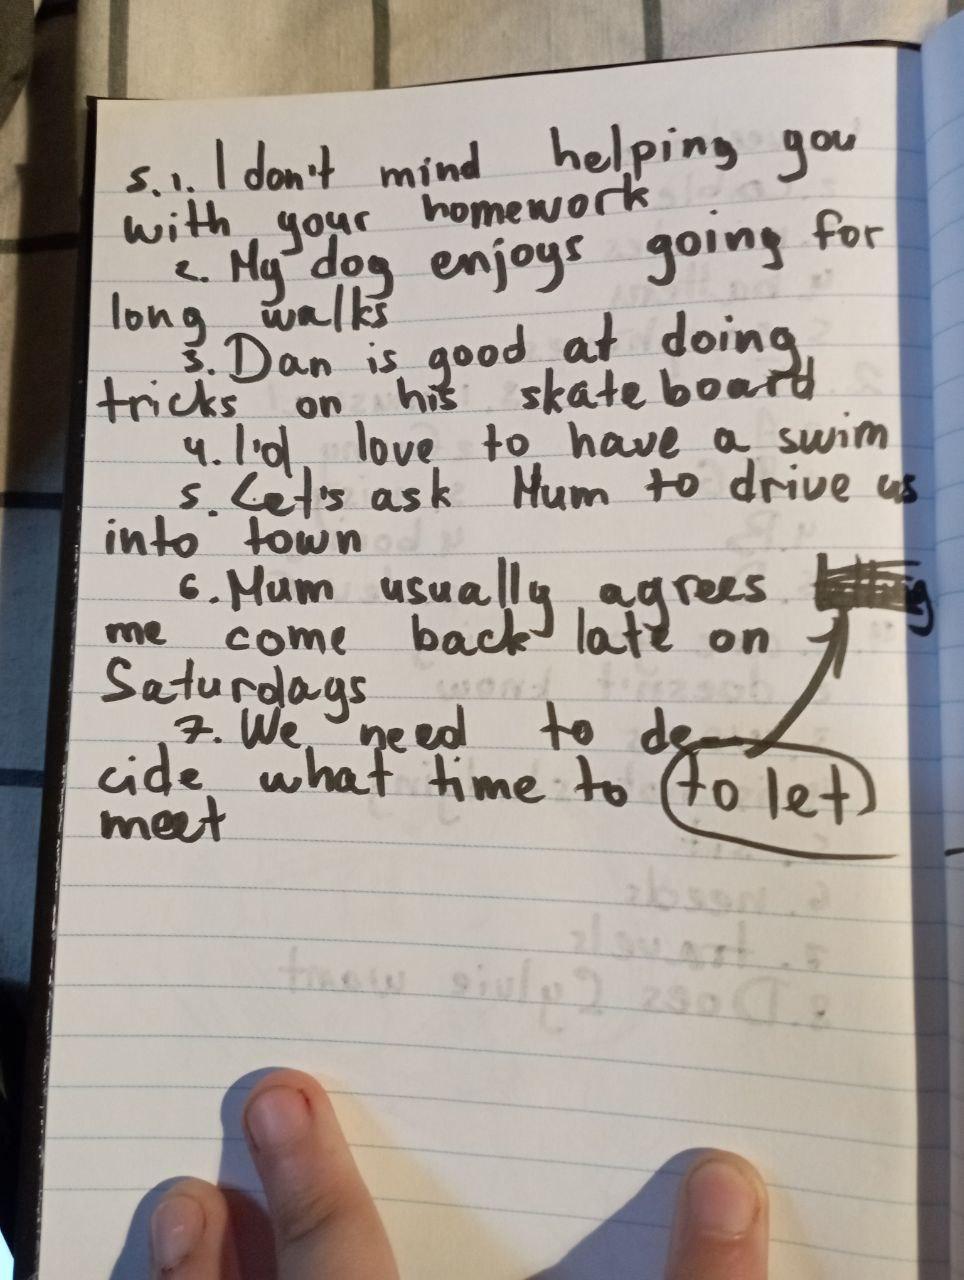 5.1. I don't mind helping you
with your homework
2. My dog enjoys going for
long walks
3. Dan is good at doing
tricks on his skateboard
4. I'd love to have a swim
5. Let's ask Mum to drive us
into town
6. Mum usually agrees
me come back late on
Saturdays
7. We need to de
cide what time to (to let)
meet
6. needs
7. travels
8. Does Cylvie want